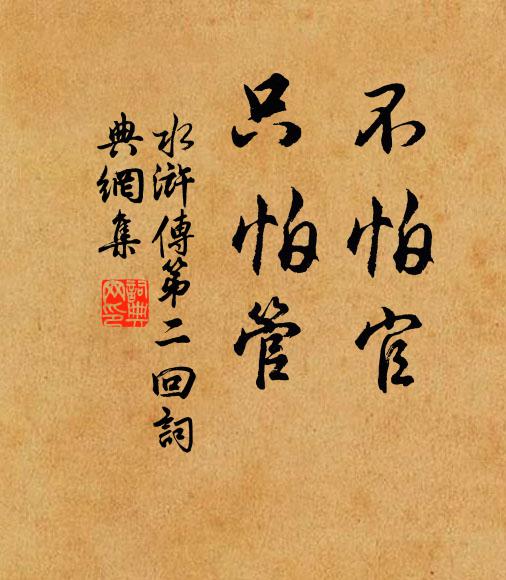 不怕官
只怕管
水滸傳第二回詞
典網集
詞典
網印